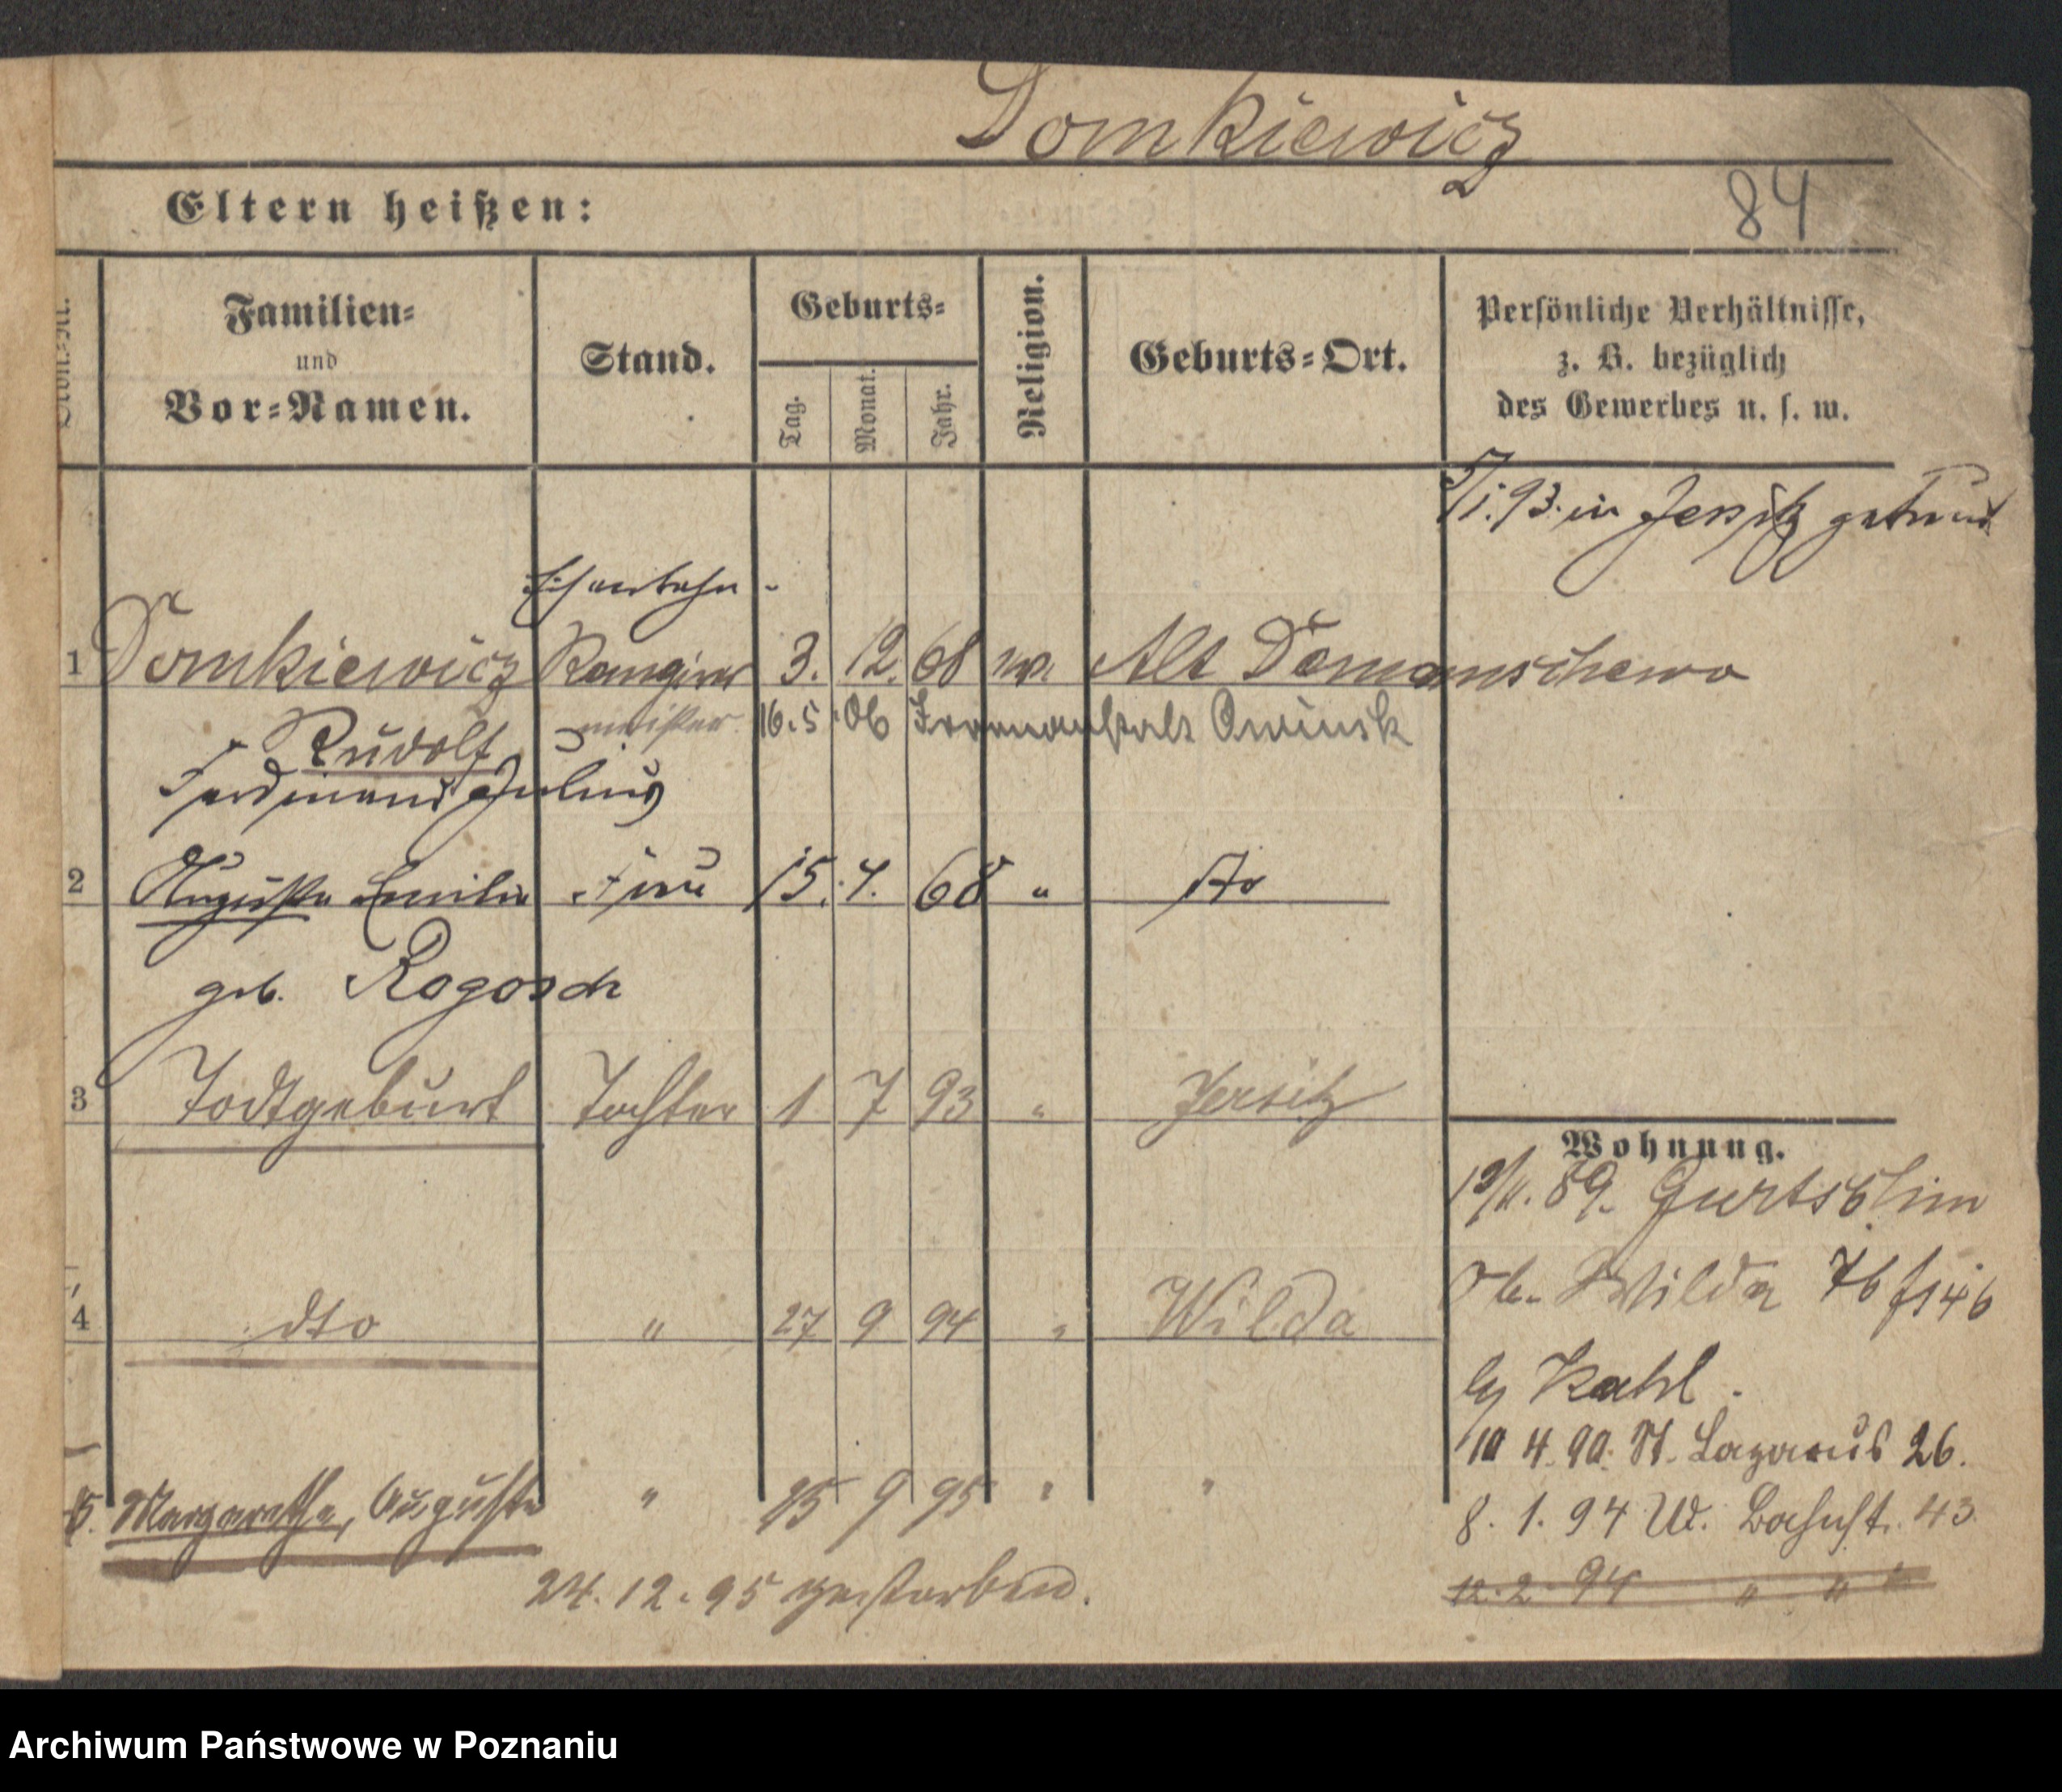 Domkiewicz
84
Eltern heißen:
Familien=
und
Vor=Namen.
Stand.
Geburts=
Tag.
Monat.
Jahr.
Religion.
Geburts=Ort.
Persönliche Verhältnisse,
z. B. bezüglich
des Gewerbes u. s. w.
5/1. 93. in Jersitz getraut
Eisenbahn-
1 Domkiewicz Rangier 3. 12. 68 ev. Alt Domanschewo
Rudolf meister 16. 5. 06 Irrenanstalt Owinsk
Ferdinand Julius
2 Auguste Emilie Frau 15. 4. 68 "
geb. Rogosch
3 Todtgeburt Tochter 1 7 93 " Jersitz
4 dto " 27 9 94 " Wilda
5. Margarethe, Auguste " 9 95 " "
24. 12. 95 gestorben.
Wohnung.
89. Gurtschin
Ob. Wilda 76
by Kahl.
10 4. 90. St. Lazarus 26.
8. 1. 94 W. Bahnst. 43
12. 2. 94 " " "
Archiwum Państwowe w Poznaniu